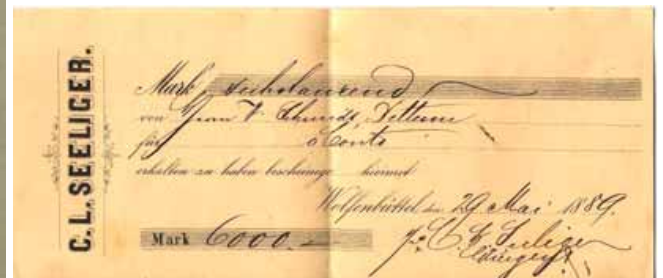 C. L. SEELIGER.
Mark sechstausend
von Frau V. Schmidt, Dettum
für à Conto
erhalten zu haben bescheinige hiermit
Wolfenbüttel, den 29 Mai 1889.
Mark 6000.–
C. L. Seeliger